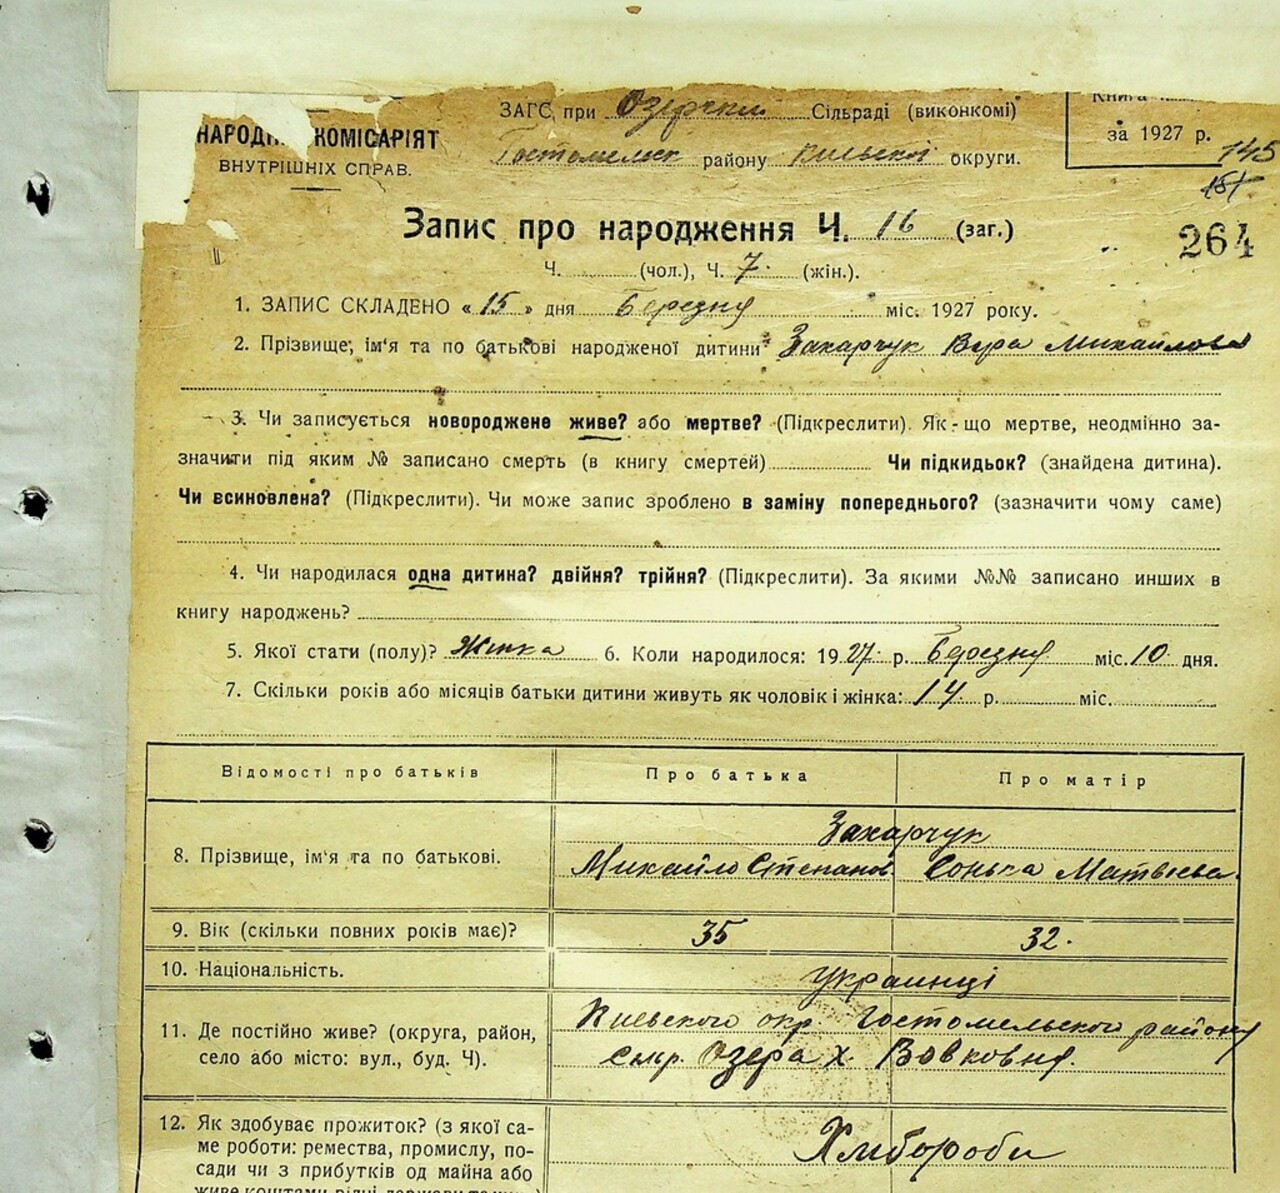 ЗАГС при Озерскій Сільраді (виконкомі)
Книга
НАРОДН КОМІСАРІЯТ
за 1927 р.
Гостомельск району Київської округи.
145
ВНУТРІШНІХ СПРАВ.
151
Запис про народження Ч. 16 (заг.)
264
Ч. (чол.), Ч. 7. (жін.).
1. ЗАПИС СКЛАДЕНО « 15 » дня Березня міс. 1927 року.
2. Прізвище, ім'я та по батькові народженої дитини Захарчук Вера Михайлова
3. Чи записується новороджене живе? або мертве? (Підкреслити). Як-що мертве, неодмінно за-
значити під яким № записано смерть (в книгу смертей) Чи підкидьок? (знайдена дитина).
Чи всиновлена? (Підкреслити). Чи може запис зроблено в заміну попереднього? (зазначити чому саме)
4. Чи народилася одна дитина? двійня? трійня? (Підкреслити). За якими №№ записано инших в
книгу народжень?
5. Якої стати (полу)? Жінка 6. Коли народилося: 1927 р. Березня міс. 10 дня.
7. Скільки років або місяців батьки дитини живуть як чоловік і жінка: 14 р. міс.
Відомості про батьків Про батька Про матір
Захарчук
8. Прізвище, ім'я та по батькові. Михайло Степанов. Сонька Матвієва.
9. Вік (скільки повних років має)? 35 32.
10. Національність. Украинці
11. Де постійно живе? (округа, район, Киевского окр. Гостомельского району
село або місто: вул., буд. Ч). Озера х. Вовковня.
12. Як здобуває прожиток? (з якої са-
ме роботи: ремества, промислу, по- Хлібороби
сади чи з прибутків од майна або
живе коштами рідні